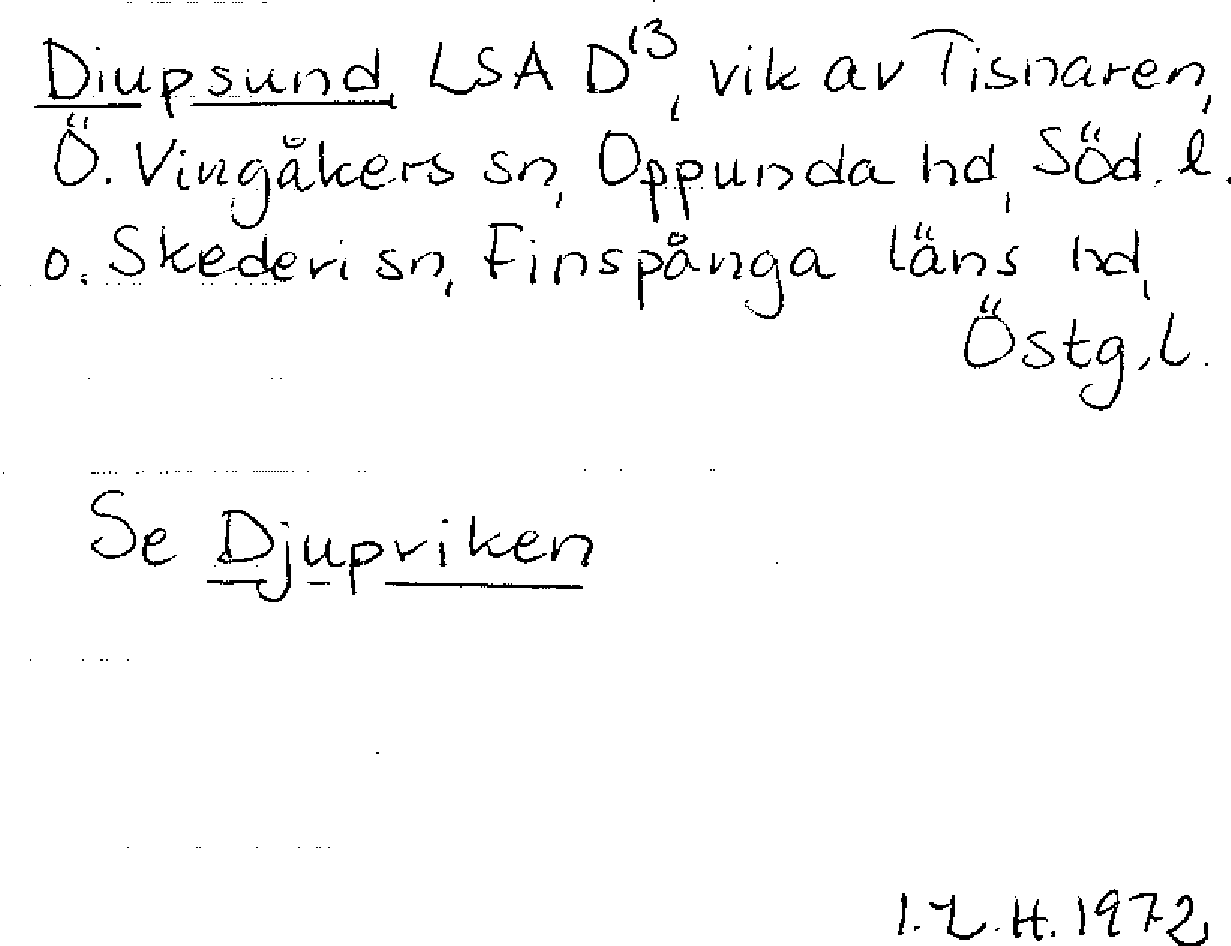 Diupsund, LSA D13, vik av Tisnaren,
Ö. Vingåkers sn, Oppunda hd, Söd. l.
o. Skederi sn, Finspånga läns hd,
Östg. l.
Se Djupviken
1972